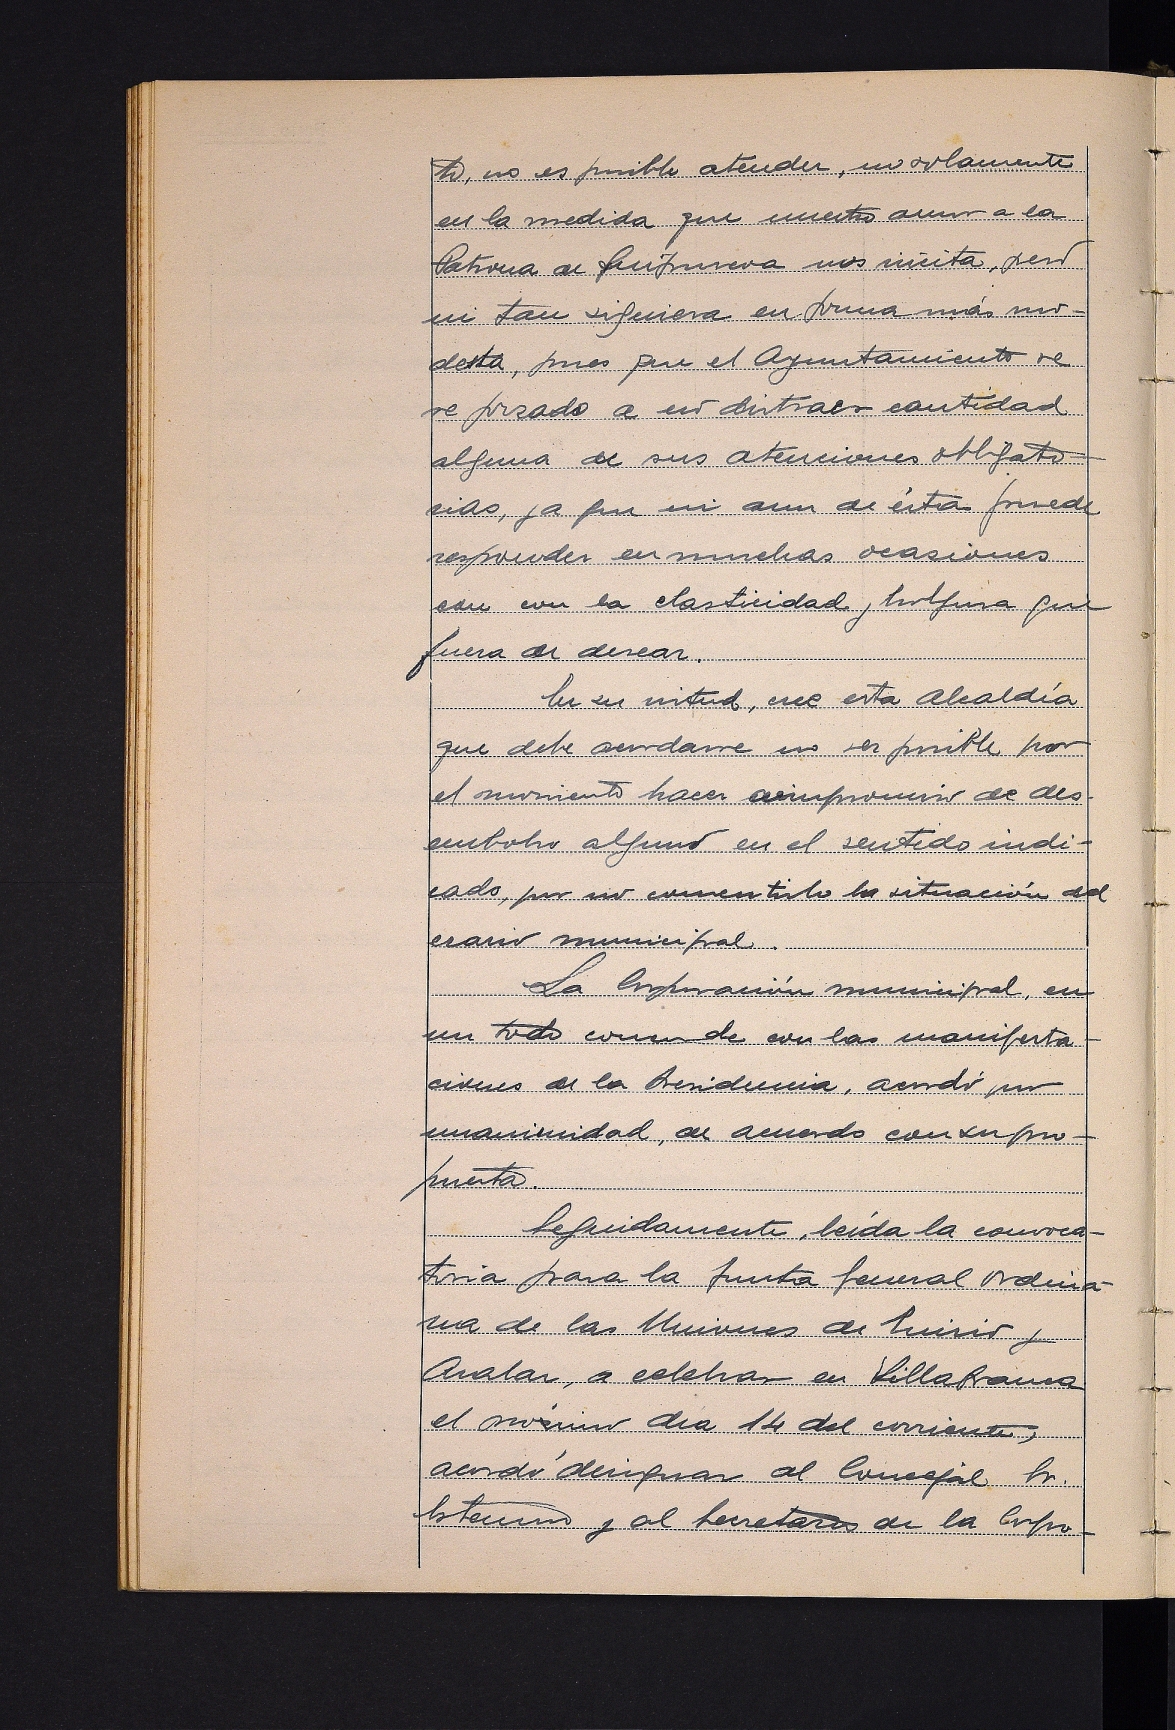 to, no es posible atender, no solamente
en la medida que nuestro amor a la
Patrona de Guipuzcoa nos incita, pero
ni tan siquiera en forma más mo-
desta, pues que el Ayuntamiento se
ve forzado a no distraer cantidad
alguna de sus atenciones obligato-
rias, ya que ni aun de ésta puede
responder en muchas ocasiones
con con la elasticidad y holgura que
fuera de desear.
En su virtud, cree esta Alcaldía
que debe acordarse no ser posible por
el momento hacer compromiso de des-
embolso alguno en el sentido indi-
cado, por no consentirlo la situación del
erario municipal.
La Corporación municipal, en
un todo conforme con las manifesta-
ciones de la Presidencia, acordó por
unanimidad, de acuerdo con su pro-
puesta.
Seguidamente, leída la convoca-
toria para la Junta general ordina-
ria de las Uniones de Enirio y
Aralar, a celebrar en Villafranca
el próximo dia 14 del corriente,
acordó designar al Concejal Sr.
y al Secretario de la Corpo-